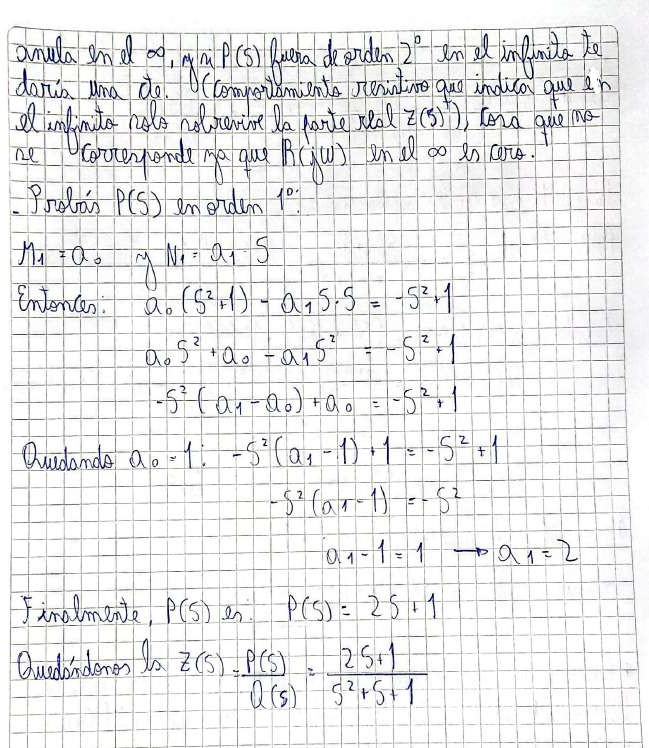 anula en el ∞, y si P(S) fuera de orden 2° en el infinito te
daría una cte. (Comportamiento resistivo que indica que en
el infinito solo sobrevive la parte real Z(S)), cosa que no
se corresponde ya que R(jω) en el ∞ es cero.
- Probás P(S) en orden 1°:
M₁ = a₀ y N₁ = a₁ S
Entonces: a₀ (S²+1) - a₁ S·S = -S²+1
a₀ S² + a₀ - a₁ S² = -S²+1
-S² (a₁ - a₀) + a₀ = -S²+1
Quedando a₀ = 1: -S² (a₁ - 1) + 1 = -S² + 1
-S² (a₁ - 1) = -S²
a₁ - 1 = 1 → a₁ = 2
Finalmente, P(S) es: P(S) = 2S + 1
Quedándonos la Z(S) = P(S)/Q(S) = 2S+1/S²+S+1